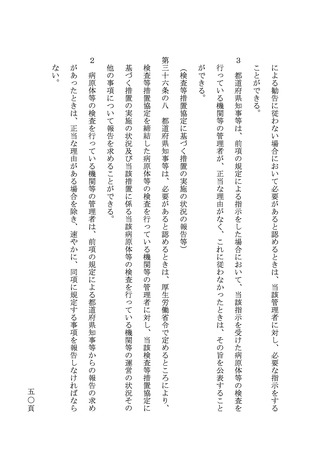 による勧告に従わない場合において必要があると認めるときは、当該管理者に対し、必要な指示をする
ことができる。
３　都道府県知事等は、前項の規定による指示をした場合において、当該指示を受けた病原体等の検査を
行っている機関等の管理者が、正当な理由がなく、これに従わなかったときは、その旨を公表すること
ができる。
（検査等措置協定に基づく措置の実施の状況の報告等）
第三十六条の八　都道府県知事等は、必要があると認めるときは、厚生労働省令で定めるところにより、
検査等措置協定を締結した病原体等の検査を行っている機関等の管理者に対し、当該検査等措置協定に
基づく措置の実施の状況及び当該措置に係る当該病原体等の検査を行っている機関等の運営の状況その
他の事項について報告を求めることができる。
２　病原体等の検査を行っている機関等の管理者は、前項の規定による都道府県知事等からの報告の求め
があったときは、正当な理由がある場合を除き、速やかに、同項に規定する事項を報告しなければなら
ない。
五〇頁